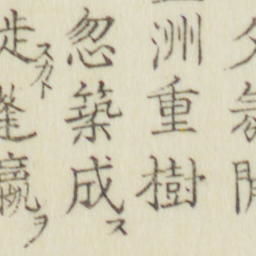 夕気開
洲重樹
忽築成ス
徙スカト蓬瀛ヲ